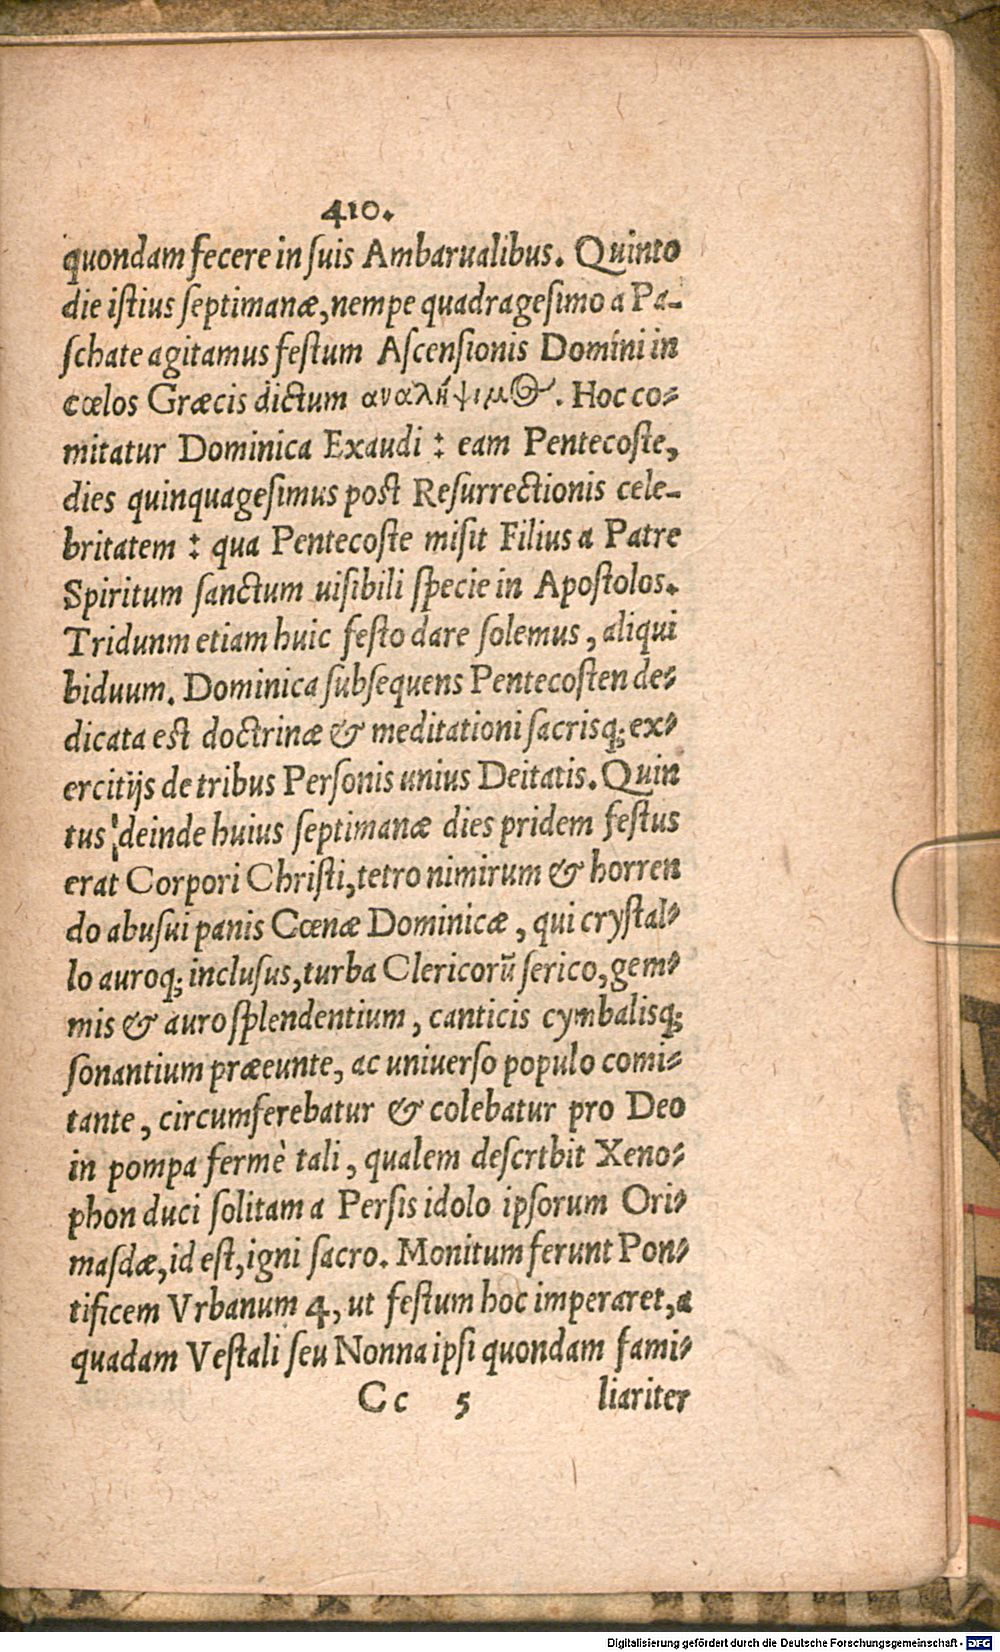 410.
quondam fecere in suis Ambarualibus. Quinto
die istius septimanæ, nempe quadragesimo a Pa-
schate agitamus festum Ascensionis Domini in
cœlos Græcis dictum αναλήψιμος. Hoc co-
mitatur Dominica Exaudi : eam Pentecoste,
dies quinquagesimus post Resurrectionis cele-
britatem : qua Pentecoste misit Filius a Patre
Spiritum sanctum uisibili specie in Apostolos.
Tridunm etiam huic festo dare solemus, aliqui
biduum. Dominica subsequens Pentecosten de-
dicata est doctrinæ & meditationi sacrisq; ex-
ercitijs de tribus Personis unius Deitatis. Quin
tus deinde huius septimanæ dies pridem festus
erat Corpori Christi, tetro nimirum & horren
do abusui panis Cœnæ Dominicæ, qui crystal-
lo auroq; inclusus, turba Clericorũ serico, gem-
mis & auro splendentium, canticis cymbalisq;
sonantium præeunte, ac uniuerso populo comi-
tante, circumferebatur & colebatur pro Deo
in pompa fermè tali, qualem descrtbit Xeno-
phon duci solitam a Persis idolo ipsorum Ori-
masdæ, id est, igni sacro. Monitum ferunt Pon-
tificem Vrbanum 4, ut festum hoc imperaret, a
quadam Vestali seu Nonna ipsi quondam fami-
Cc 5 liariter
Digitalisierung gefördert durch die Deutsche Forschungsgemeinschaft - DFG